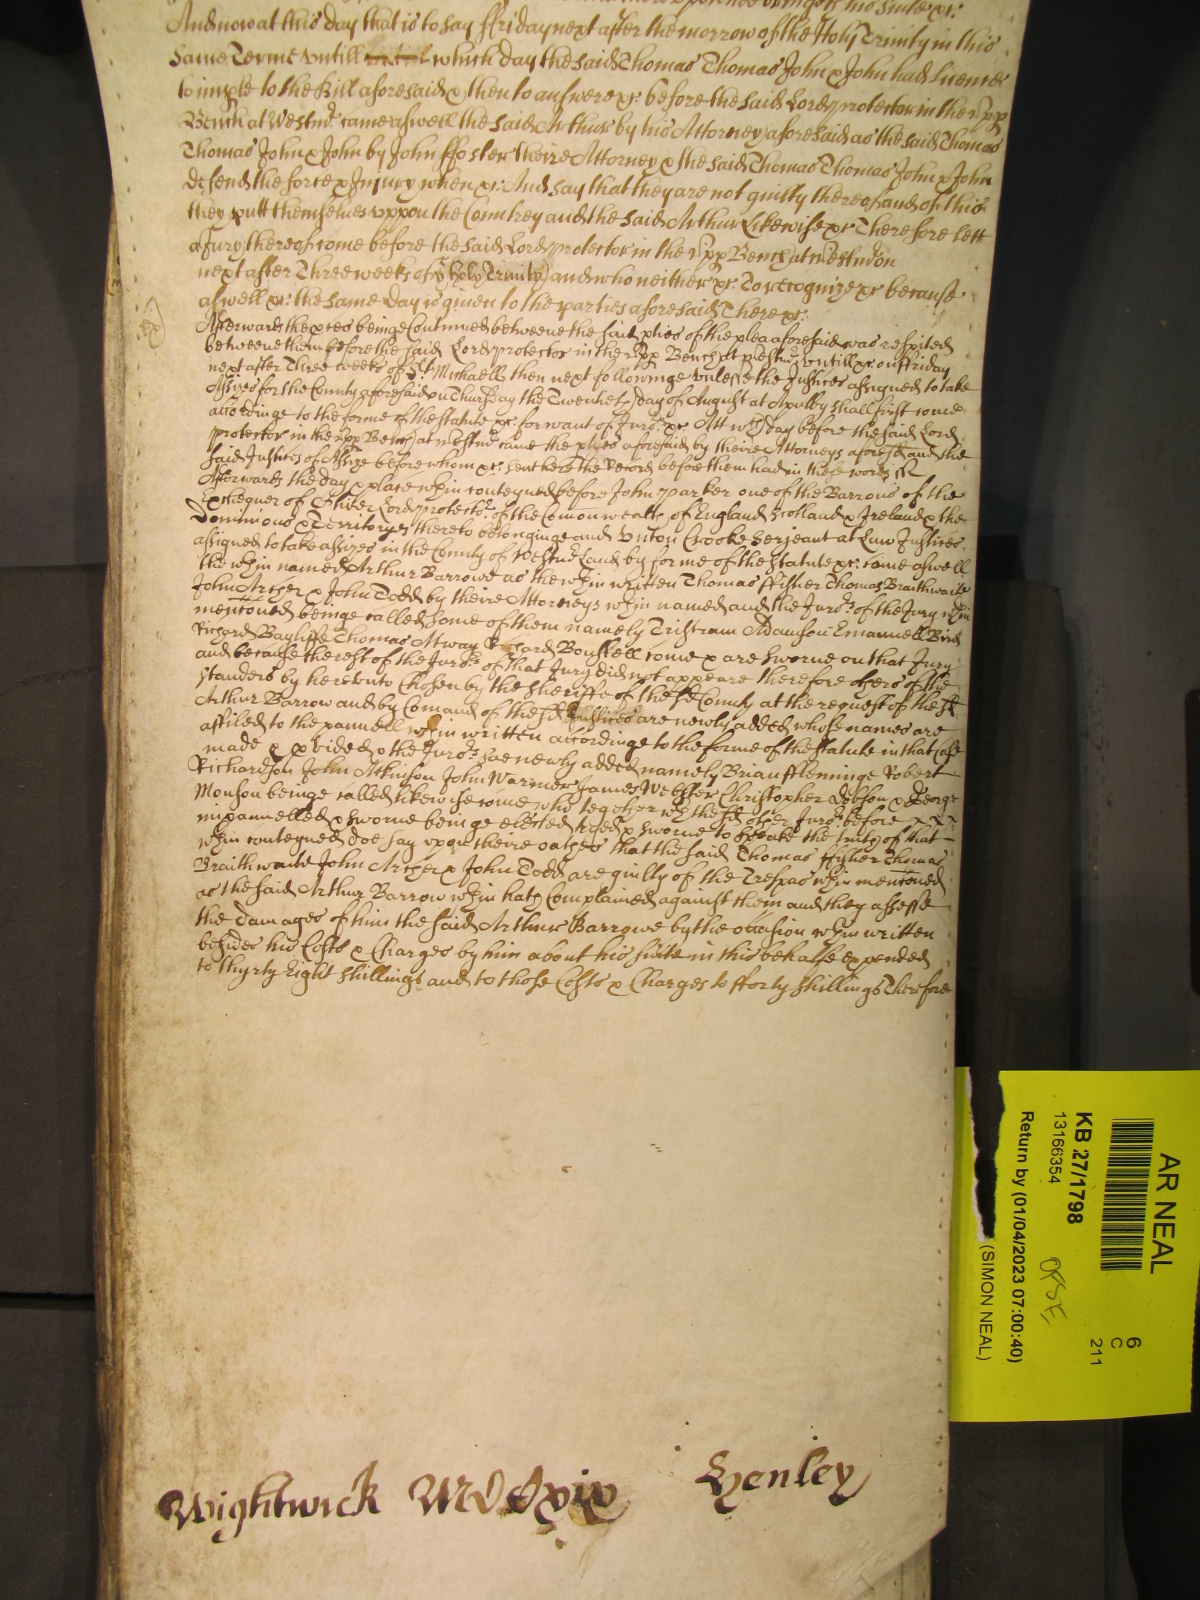 And now at this day that is to say ffriday next after the morrow of the Holy Trinity in this
same Terme untill which day the said Thomas Thomas John & John had licence
to imple to the Bill aforesaid & then to answere &c: before the said Lord protector in the upp
Bench at Westmr. came aswell the said Arthur by his Attorney aforesaid as the said Thomas
Thomas John & John by John ffoster theire Attorney & the said Thomas Thomas John & John
defend the force & Injury when &c: And say that they are not guilty thereof and of this
they putt themselves uppon the Countrey and the said Arthur Likewise &c Therefore lett
a Jury thereof come before the said Lord protector in the upp Bench at Westm on
next after Three weeks of ye holy Trinity and who neither &c To recognize &c because
aswell &c: the same day is given to the parties aforesaid There &c:
Afterwards the pces beinge Continued betweene the said pties of the plea aforesaid was respited
betweene them before the said Lord protector in the upp Bench at Westmr. untill &c on ffriday
next after Three weeks of St. Michaell then next followinge unlesse the Justices assigned to take
Assizes for the County aforesaid on Thursday the Twentieth day of August at Apulby shall first come
accordinge to the forme of the statute &c: for want of Juro:rs &c Att wch day before the said Lord
protector in the upp Bench at Westmr. came the pties aforesaid by theire Attorneys aforesd and the
said Justices of Assize before whom &c: sent here the Record before them had in these words ss
Afterwards the day & place wthin conteyned before John Parker one of the Barrons of the
Exchequer of Lord protector. of the Comonwealth of England Scotland & Ireland & the
Dominions & Territoryes thereto belonginge and Unton Crooke Serjeant at Law Justices
assigned to take assizes in the County of Westmrland by forme of the statute &c: came aswell
the wthin named Arthur Barrowe as the wthin written Thomas ffisher Thomas Braithwaite
John Archer & John Todd by theire Attorneys wthin named and the Juro:rs of the Jury wthin
mentoned beinge called some of them namely Tristram Adamson Emanuell Bird
Richard Bayliffe Thomas Atway Richard Bousfell come & are sworne on that Jury
and because the rest of the Juro:rs of that Jury did not appeare therefore others of the
standers by hereunto Chosen by the Sheriffe of the sd County at the request of the sd
Arthur Barrow and by Comand of the sd Justices are newly added whose names are
affiled to the pannell wthin written accordinge to the forme of the statute in that case
made & pvided & the Juro:rs soe newly added namely Brian fflemminge Robert
Richardson John Atkinson John Warriner James Webster Christopher Dobson & George
Monson beinge called likewise come who together wth the sd other Juro:rs before
impannelled & sworne beinge elected tryed & sworne to speake the truth of that
wthin conteyned doe say upon theire oathes that the said Thomas ffisher Thomas
Braithwaite John Archer & John Todd are guilty of the Trespas wthin mentoned
as the said Arthur Barrow wthin hath Complained against them and they assesse
the damages of him the said Arthur Barrowe by the occasion wthin written
besides his Costs & Charges by him about his suite in this behalfe expended
to thyrty Eight shillings and to those Costs & Charges to fforty shillings Therefore
Wightwick Mdxix Henley
AR NEAL
KB 27/1798
13166354
Return by (01/04/2023 07:00:40)
(SIMON NEAL)
6
C
211